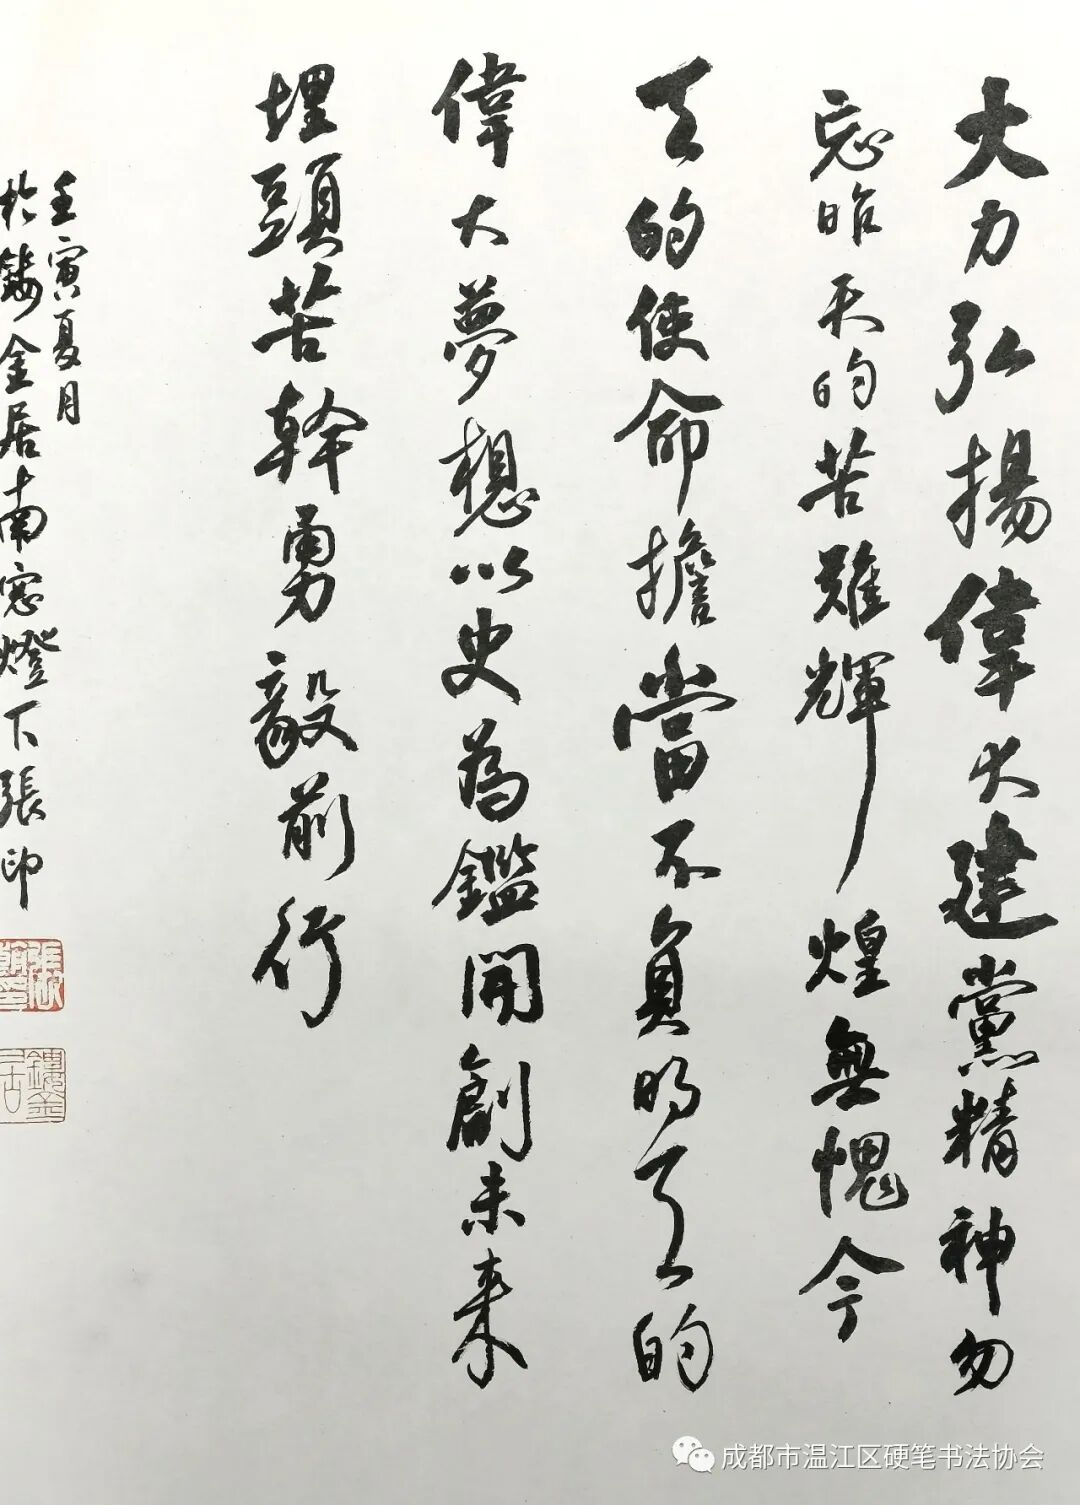 大力弘揚偉大建黨精神勿
忘昨天的苦難輝煌無愧今
天的使命擔當不負明天的
偉大夢想以史為鑑開創未来
埋頭苦幹勇毅前行
壬寅夏月
於鏤金居南窓燈下張印
鏤金居
成都市温江区硬笔书法协会